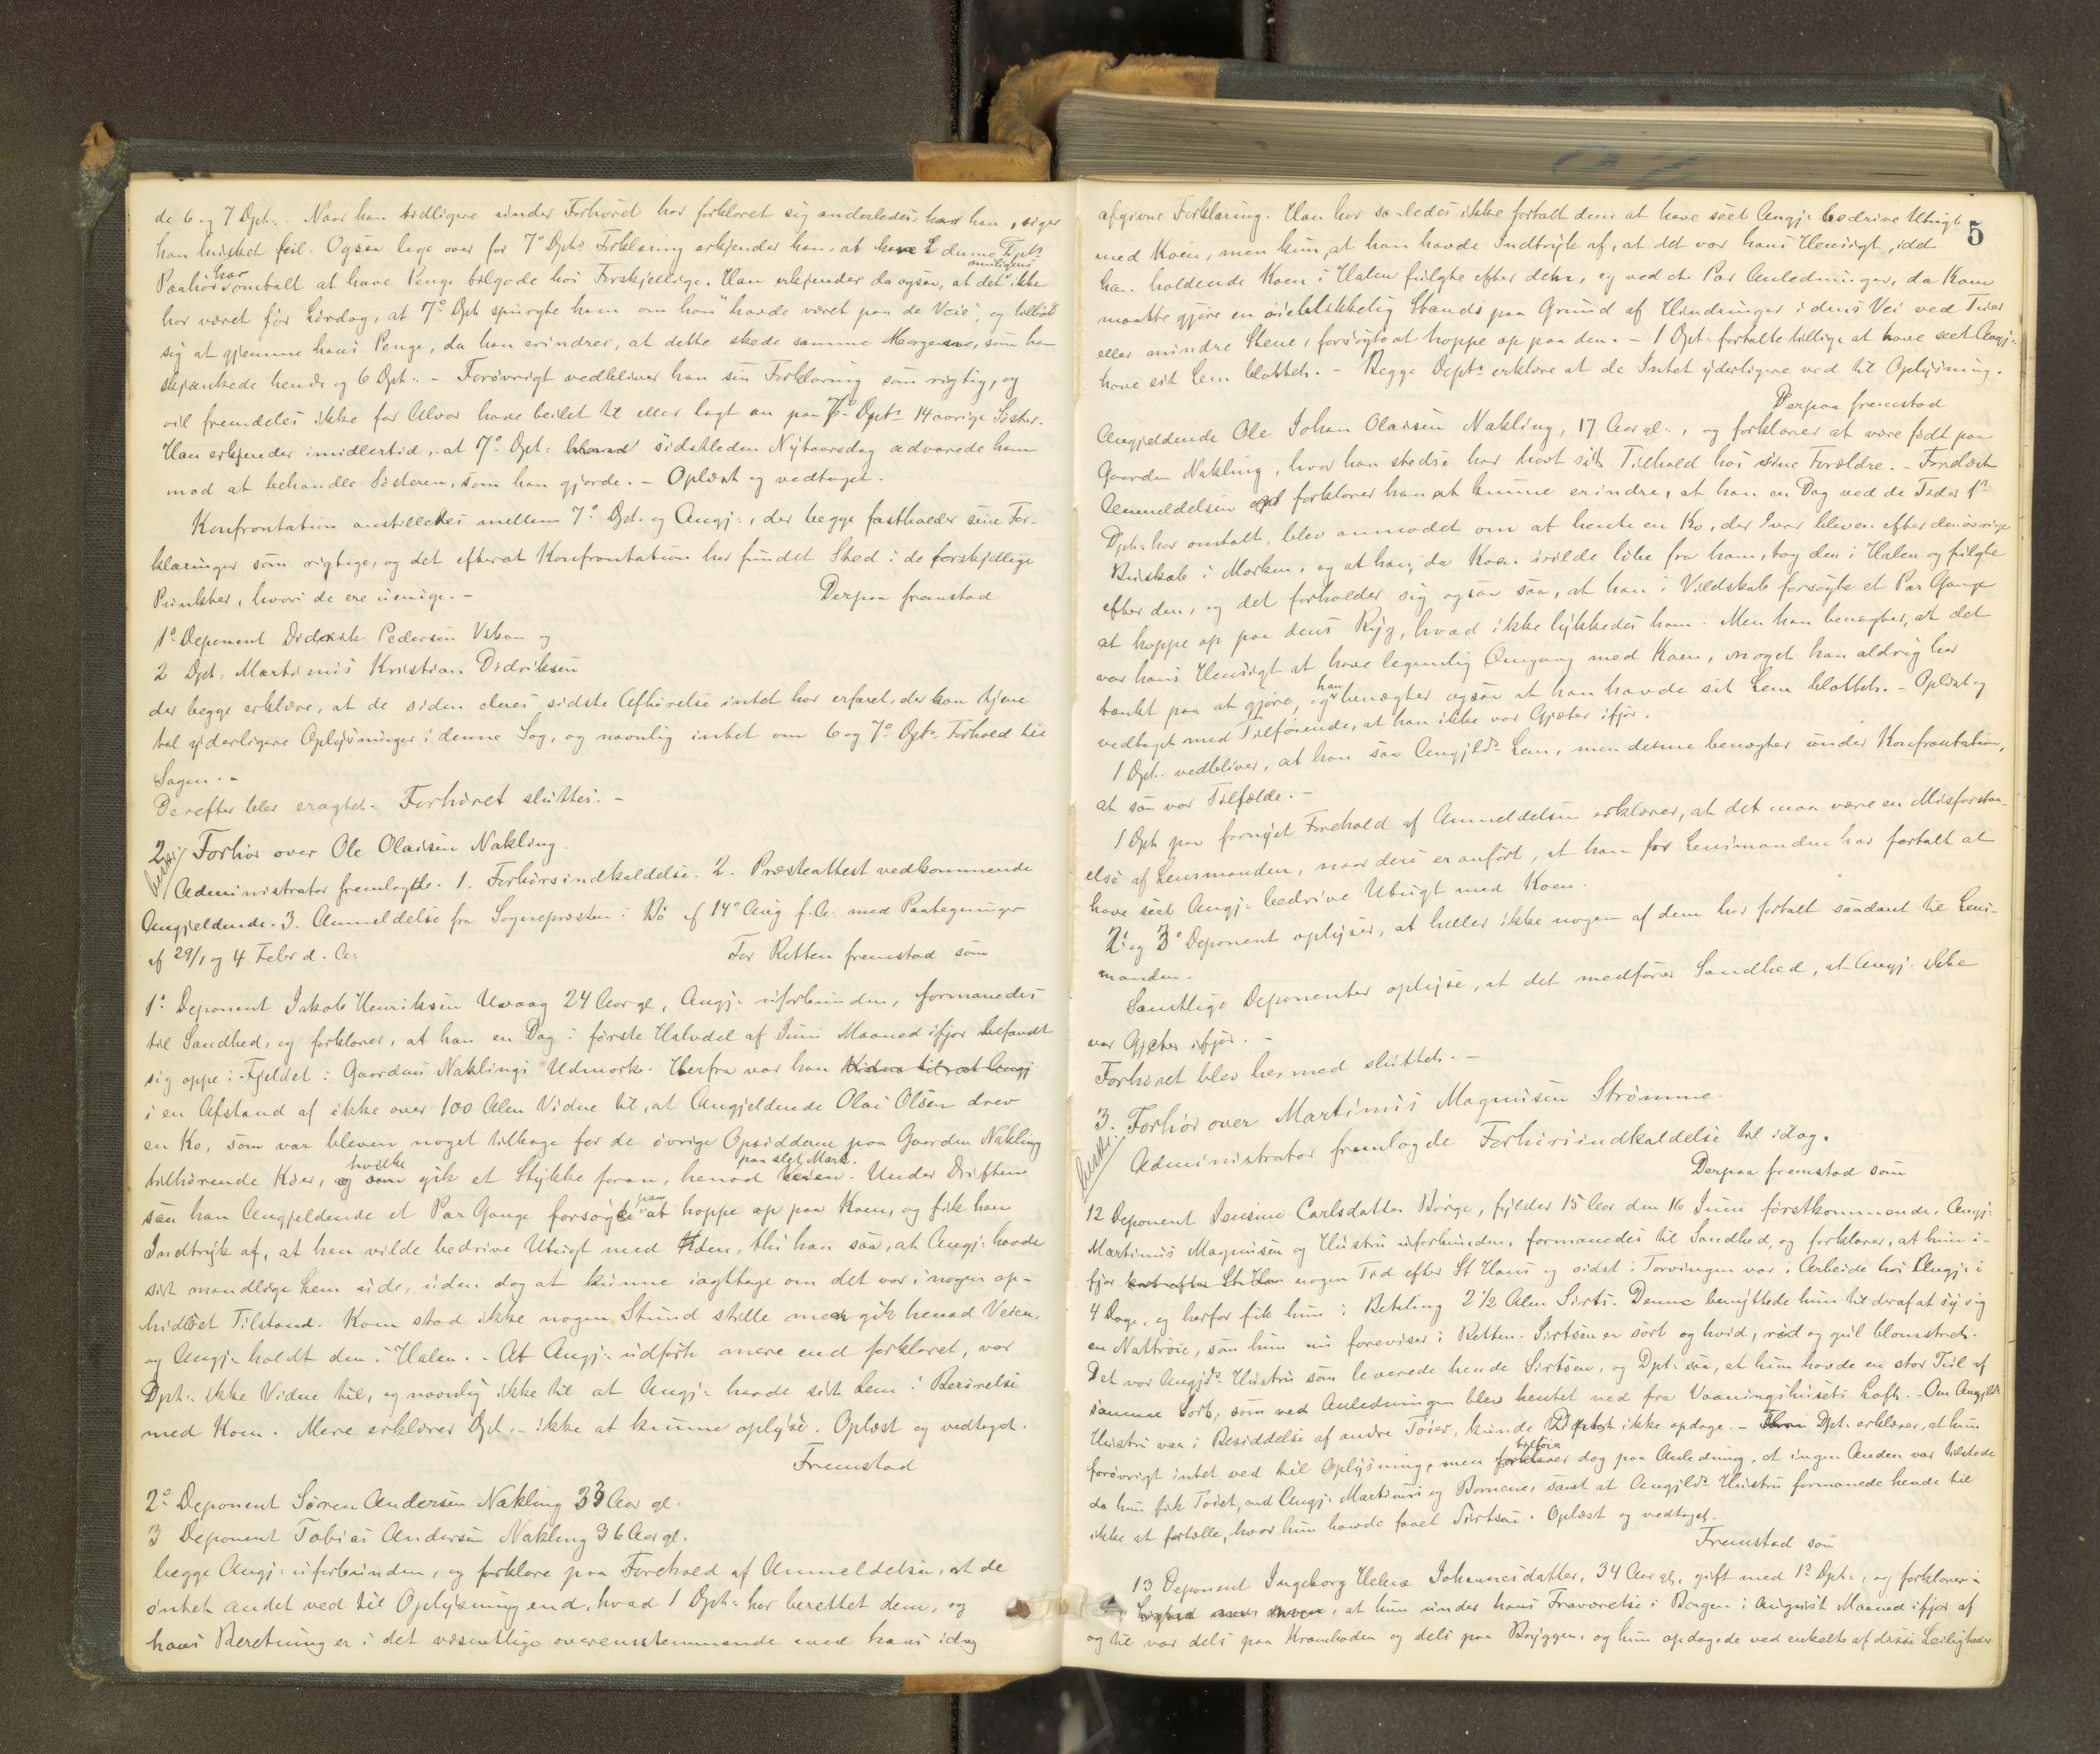 de 6 og 7 Dpt.. Naar han tidligere under Forhøret har forklaret sig anderledes, har han, siger
han husket feil. Ogsaa lige over for 7º Dpts Forklaring erkjender han, at have i denne Dpts
Paahør har omtalt at have Penge tilgode hos Forskjellige. Han erkjender da ogsaa, at det muligens ikke
har været før Lørdag, at 7º Dpt spurgte ham om han "havde været paa de Veie", og tilbød
sig at gjemme hans Penge, da han erindrer, at dette skede samme Morgen, som han
skjænkede hende og 6 Dpt.. - Forøvrigt vedbliver han sin Forklaring som rigtig, og
vil fremdeles ikke for Alvor have beilet til eller lagt an paa 7º Dpts 14 aarige Søster.
Han erkjender imidlertid, at 7º Dpt: sidstleden Nytaarsdag advarede ham
mod at behandle Søsteren, som han gjorde. - Oplæst og vedtaget.
Konfrontation anstilledes mellem 7º Dpt. og Angj:, der begge fastholder sine For-
klaringer som rigtige, og det efterat Konfrontation har fundet Sted i de forskjellige
Punkter, hvori de ere uenige. -
Derpaa fremstod
1º Deponent Didrik Pedersen og
2 Dpt. Martinus Kristian Didriksen
der begge erklære, at de siden deres sidste Afhørelse intet har erfaret, der kan tjene
til yderligere Oplysninger i denne Sag, og navnlig intet om 6 og 7º Dpts Forhold til
Sagen. -
Derefter blev eragtet. Forhøret sluttes. -
2. Forhør over Ole Olaisen Nakling.
Administrator fremlagde. 1. Forhørsindkaldelse. 2. Præsteattest vedkommende
Angjeldende. 3. Anmeldelse fra Sognepræsten i Bø af 14º Aug f. A. med Paategninger
af 29/1 og 4 Febr d. A:
For Retten fremstod som
1º Deponent Jakob Henriksen Uvaag 24 Aar gl, Angj: uforbunden, formanedes
til Sandhed, og forklarer, at han en Dag i første Halvdel af Juni Maaned ifjor befandt
sig oppe i Fjeldet i Gaarden Naklings Udmark. Herfra var han Vidne til, at Angj
i en Afstand af ikke over 100 Alen Vidne til, at Angjeldende Olai Olsen drev
en Ko, som var bleven noget tilbage for de øvrige Opsidderne paa Gaarden Nakling
tilhørende Kiør, og som hvilke gik et Stykke foran, henad Veien paa slet Mark. Under Driften
saa han Angjeldende et Par Gange forsøgte paa at hoppe op paa Koen, og fik han
Indtryk af, at han vilde bedrive Utugt med den, thi han saa, at Angj: havde
sit mandlige Lem ude, uden dog at kunne iagttage om det var i nogen op-
hidset Tilstand. Koen stod ikke nogen Stund stille men gik henad Veien,
og Angj: holdt den i Halen. - At Angj: udførte mere end forklaret, var
Dpt: ikke Vidne til, og navnlig ikke til at Angj: havde sit Lem i Berørelse
med Koen. Mere erklærer Dpt. - ikke at kunne oplyse. Oplæst og vedtaget.
Fremstod
2º Deponent Søren Andersen Nakling 33 Aar gl.
3 Deponent Tobias Andersen Nakling 36 Aar gl.
begge Angj: uforbunden, og forklare paa Forehold af Anmeldelsen, at de
intet andet ved til Oplysning end, hvad 1 Dpt: har berettet dem, og
hans Beretning er i det væsentlige overensstemmende med hans idag
5
afgivne Forklaring. Han har saaledes ikke fortalt dem at have seet Angj: bedrive Utugt
med Koen, men kun, at han havde Indtryk af, at det var hans Hensigt, idet
han holdende Koen i Halen fulgte efter den, og ved et Par Anledninger, da Koen
maatte gjøre en øieblikkelig Stands paa Grund af Hindringer i dens Vei ved Træer
eller mindre Stene, forsøgte at hoppe op paa den. - 1 Dpt. fortalte tillige at have seet Angj:
have sit Lem blottet. - Begge Dpts erklære at de Intet yderligere ved til Oplysning.
Derpaa fremstod
Angjeldende Ole Johan Olaisen Nakling, 17 Aar gl., og forklarer at være født paa
Gaarden Nakling, hvor han stedse har havt sit Tilhold hos sine Forældre. - Forelæst
Anmeldelsen forklarer han at kunne erindre, at han en Dag ved de Tider 1º
Dpt: har omtalt, blev anmodet om at hente en Ko, der var bleven efter den øvrige
Buskab i Marken, og at han, da Koen vilde løbe fra ham, tog den i Halen og fulgte
efter den, og det forholder sig ogsaa saa, at han i Vildskab forsøgte et Par Gange
at hoppe op paa dens Ryg, hvad ikke lykkedes ham. Men han benægter, at det
var hans Hensigt at have legemlig Omgang med Koen, noget han aldrig har
tænkt paa at gjøre, og han benægter ogsaa at han havde sit Lem blottet. - Oplæst og
vedtaget med Tilføiende, at han ikke var Gjæter ifjor.
1 Dpt. vedbliver, at han saa Angjelds Lem, men denne benægter under Konfrontation,
at saa var Tilfælde. -
1 Dpt paa fornyet Forehold af Anmeldelsen erklærer, at det maa være en Misforstaa-
else af Lensmanden, naar deri er anført, at han for Lensmanden har fortalt at
have seet Angj: bedrive Utugt med Koen.
2: og 3º Deponent oplyser, at heller ikke nogen af dem har fortalt saadant til Lens-
manden.
Samtlige Deponenter oplyse, at det medfører Sandhed, at Angj: ikke
var Gjæter ifjor. -
Forhøret blev hermed sluttet. -
3. Forhør over Martinus Magnusen Strømme.
Administrator fremlagde Forhørsindkaldelse til idag.
Derpaa fremstod som
12 Deponent Jensine Carlsdatter Børge, fylder 15 Aar den 16 Juni førstkommende, Angj:
Martinus Magnusen og Hustru uforbunden, formanedes til Sandhed, og forklarer, at hun i-
fjor kort efter St Han nogen Tid efter St Hans og sidst i Torvingen var i Arbeide hos Angj: i
4 Dage, og herfor fik hun i Betaling 2 1/2 Alen Sirts. Denne benyttede hun til deraf at sy sig
en Nattrøie, som hun nu foreviser i Retten. Sirtsen er sort og hvid, rød og gul blomstret.
Det var Angjds Hustru som leverede hende Sirtsen, og Dpt: saa, at hun havde en stor Del af
samme Sort, som ved Anledningen blev hentet ned fra Vaaningshusets Loft. - Om Angjelds
Hustru var i Besiddelse af andre Tøier, kunde Dpt ikke opdage. - Dpt. erklærer, at hun
forøvrigt intet ved til Oplysning, men forklarer tilføier dog paa Anledning, at ingen Anden var tilstede
da hun fik Tøiet, end Angj: Martinus og Børnene, samt at Angjlds Hustru formanede hende til
ikke at fortælle, hvor hun havde faaet Sirtsen. Oplæst og vedtaget.
Fremstod som
13 Deponent Ingeborg Helene Johannesdatter, 34 Aar gl, gift med 1º Dpt., og forklarer
at hun under hans Fraværelse i Bergen i August Maaned ifjor af
og til var dels paa Kramboden og dels paa Bryggen, og hun opdagede ved enkelte af disse Leiligheder